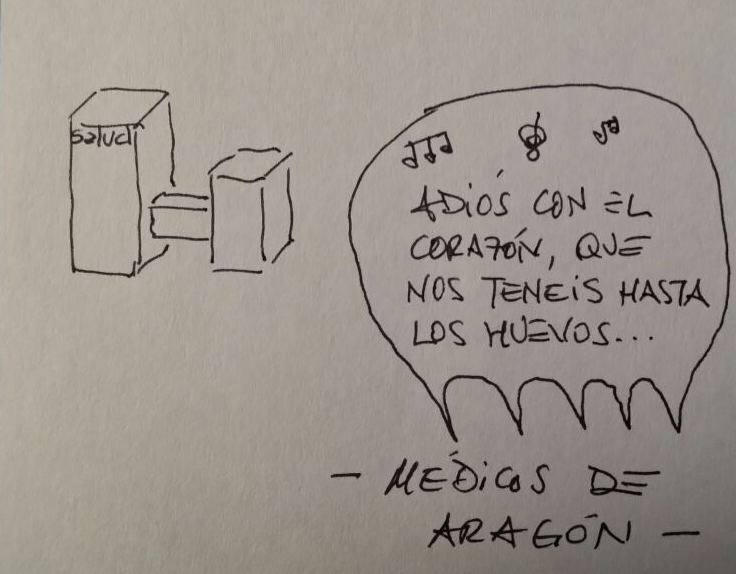 salud
ADIÓS CON EL
CORAZÓN, QUE
NOS TENEIS HASTA
LOS HUEVOS...
- MÉDICOS DE
ARAGÓN -